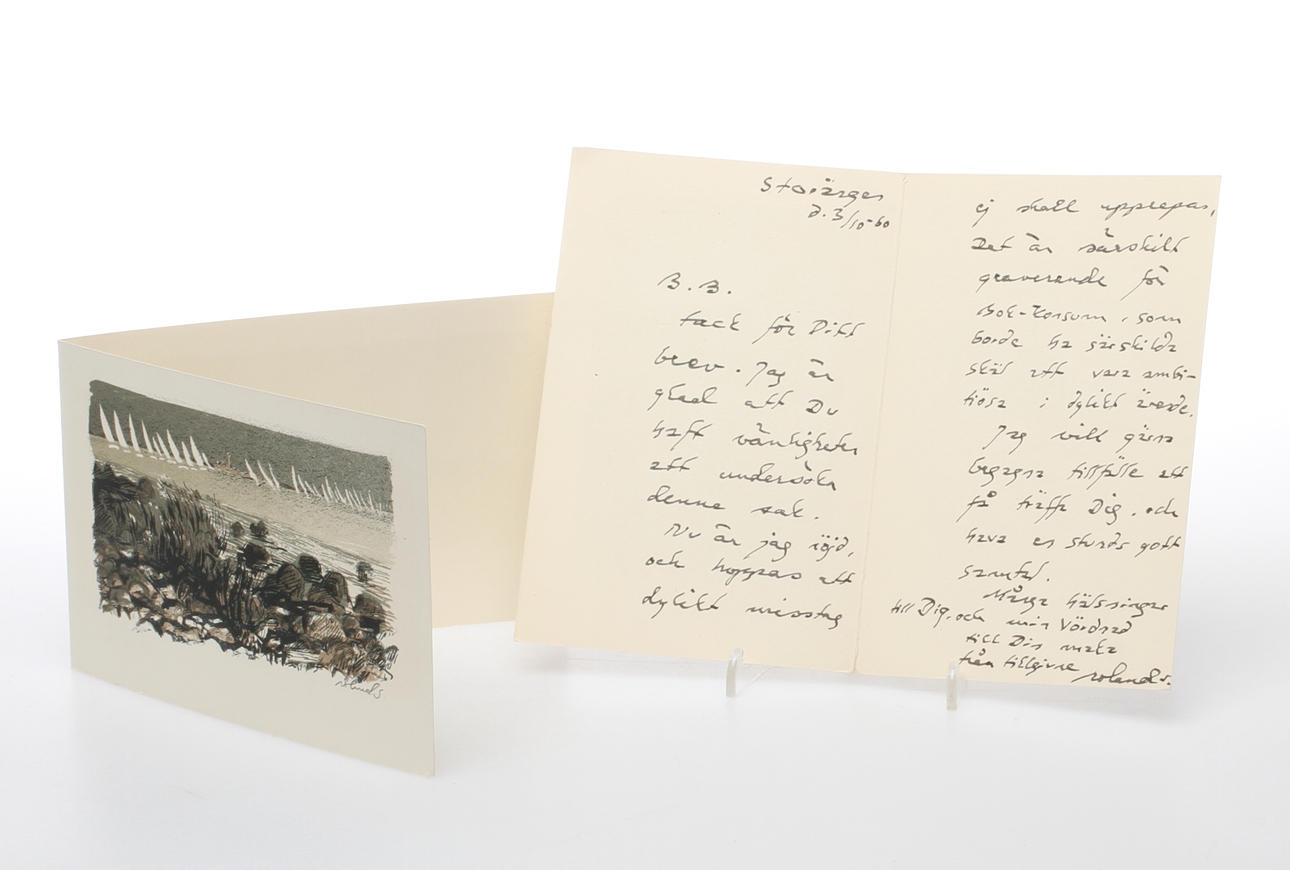 Stoïärges
d. 3/10-60
B.B.
tack för Ditt
brev. Jag är
glad att Du
haft vänligheten
att undersöka
denne sak.
Nu är jag röjd,
och hoppas att
dylikt misstag
ej skall upprepas,
Det är särskilt
graverande för
Bok-Konsum, som
borde ha särskilda
skäl att vara ambi-
tiösa i dylikt ärende.
Jag vill gärna
begagna tillfälle att
få träffa Dig, och
hava en stunds gott
samtal.
Många hälsningar
till Dig, och min vördnad
till Din maka
från tillgivne roland s.
rolands